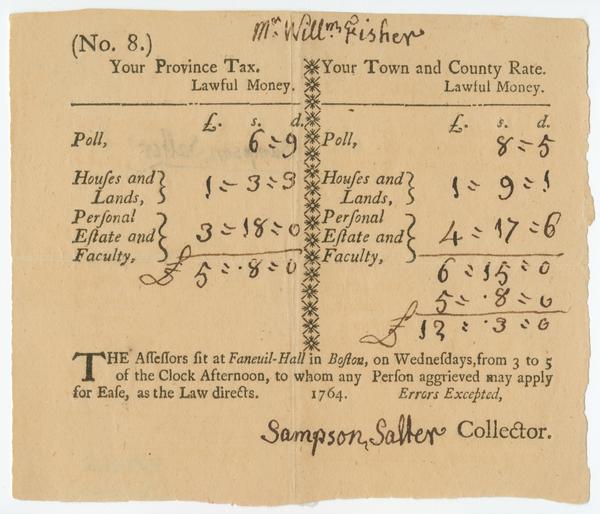 Mr. Willm. Fisher
(No. 8.)
Your Province Tax.
Lawful Money.
£. s. d.
Poll, 6=9
Houſes and
Lands, 1=3=3
Perſonal
Eſtate and 3=18=0
Faculty,
£ 5=.8=0
Your Town and County Rate.
Lawful Money.
£. s. d.
Poll, 8=5
Houſes and
Lands, 1=9=1
Perſonal
Eſtate and 4=17=6
Faculty,
6=15=0
5=.8=0
£ 12=.3=0
THE Aſſeſſors ſit at Faneuil-Hall in Boſton, on Wedneſdays, from 3 to 5
of the Clock Afternoon, to whom any Perſon aggrieved may apply
for Eaſe, as the Law directs. 1764. Errors Excepted,
Sampson, Salter Collector.